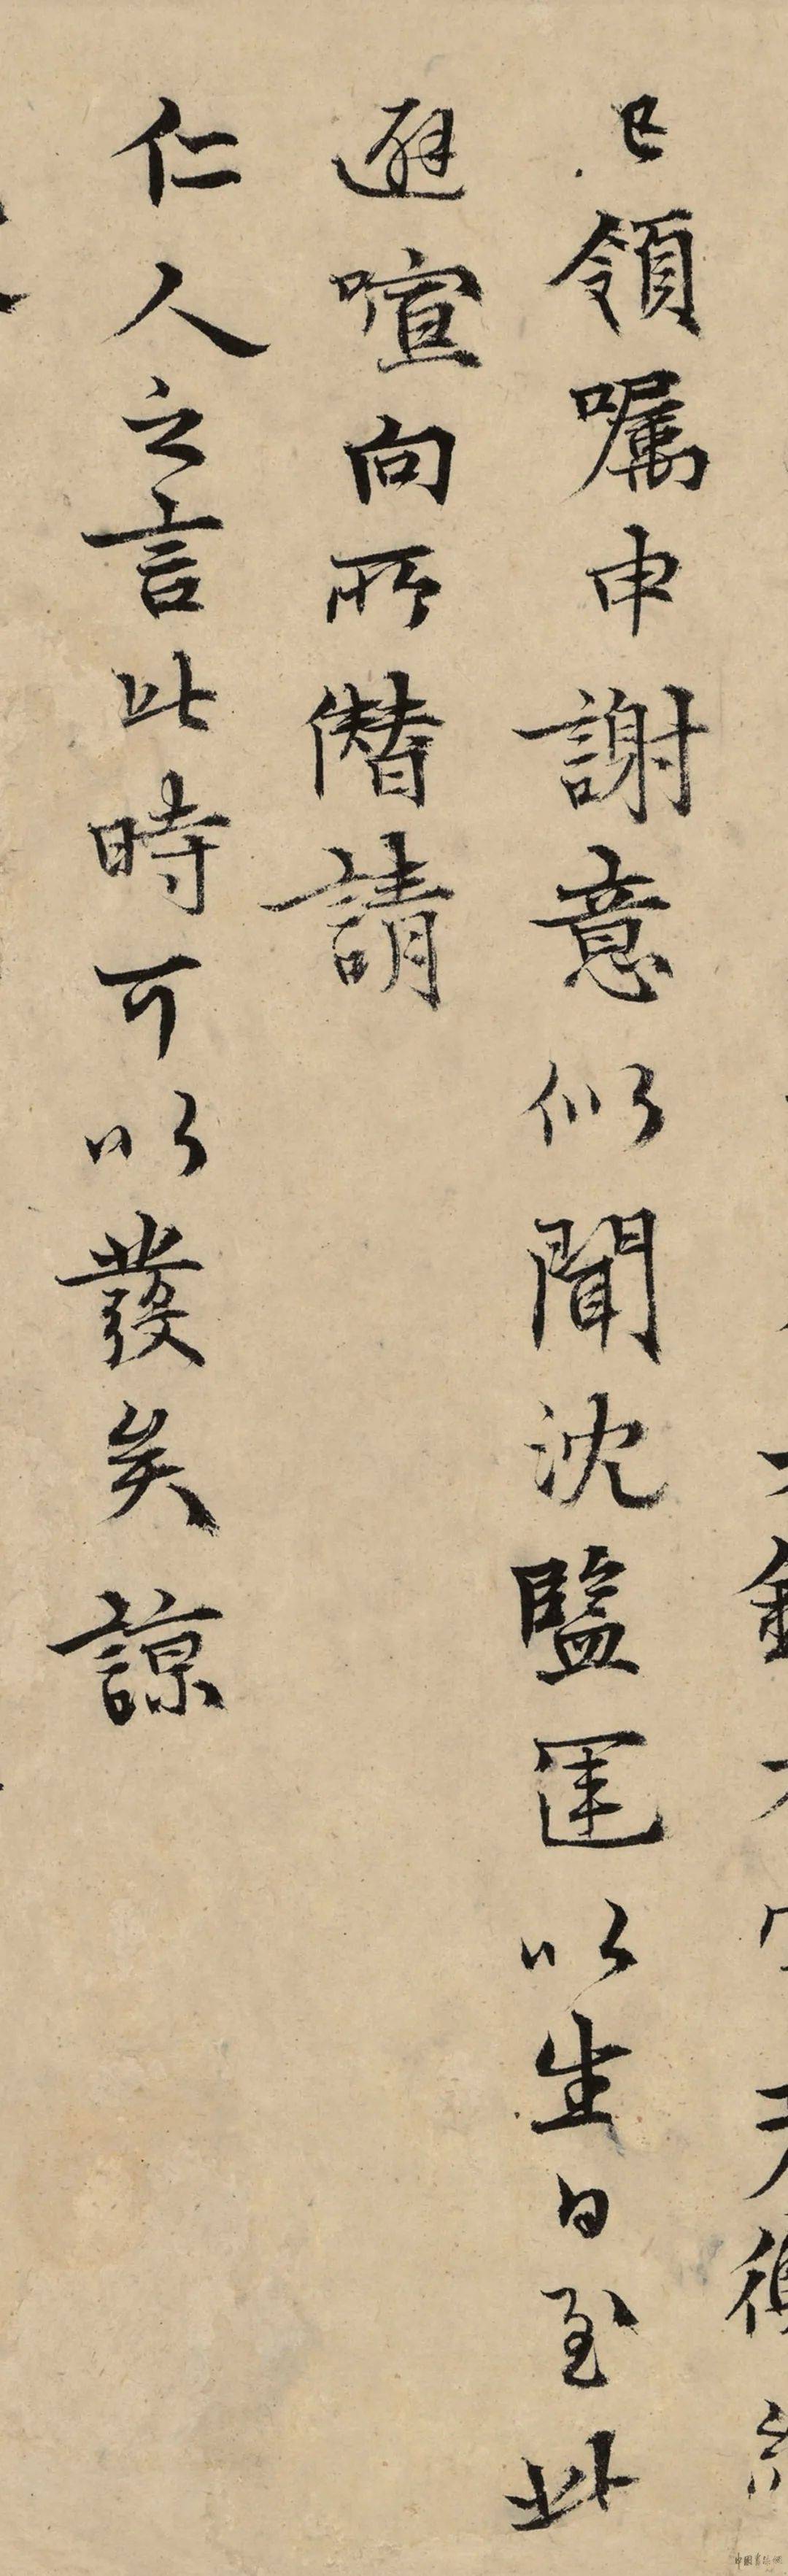 已領嘱申謝意似聞沈鹽運以生日至此
避喧向所僭請
仁人之言此時可以發矣諒